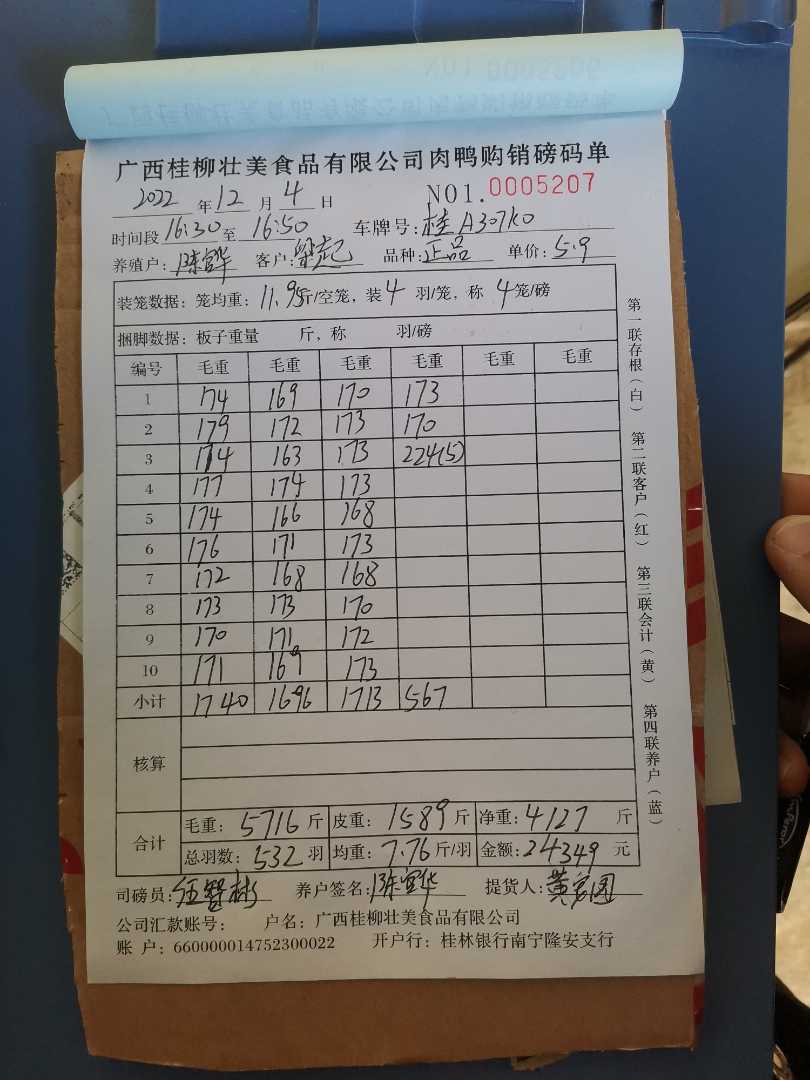 广西桂柳壮美食品有限公司肉鸭购销磅码单
2022 年 12 月 4 日 NO1.0005207
时间段 16:30 至 16:50 车牌号:桂A307K0
养殖户: 客户:梁起 品种:正品 单价:5.9
装笼数据:笼均重:11.95斤/空笼,装4 羽/笼,称 4笼/磅
捆脚数据:板子重量 斤,称 羽/磅
编号 毛重 毛重 毛重 毛重 毛重 毛重
1 174 169 170 173
2 179 172 173 170
3 174 163 173 224(5)
4 177 174 173
5 174 166 168
6 176 171 173
7 172 168 168
8 173 173 170
9 170 171 172
10 171 169 173
小计 1740 1696 1713 567
核算
合计 毛重:5716斤 皮重:1589斤 净重:4127 斤
总羽数:532 羽 均重:7.76斤/羽 金额:24349 元
司磅员: 养户签名: 提货人:
公司汇款账号: 户名:广西桂柳壮美食品有限公司
账 户:660000014752300022 开户行:桂林银行南宁隆安支行
第一联存根(白) 第二联客户(红) 第三联会计(黄) 第四联养户(蓝)